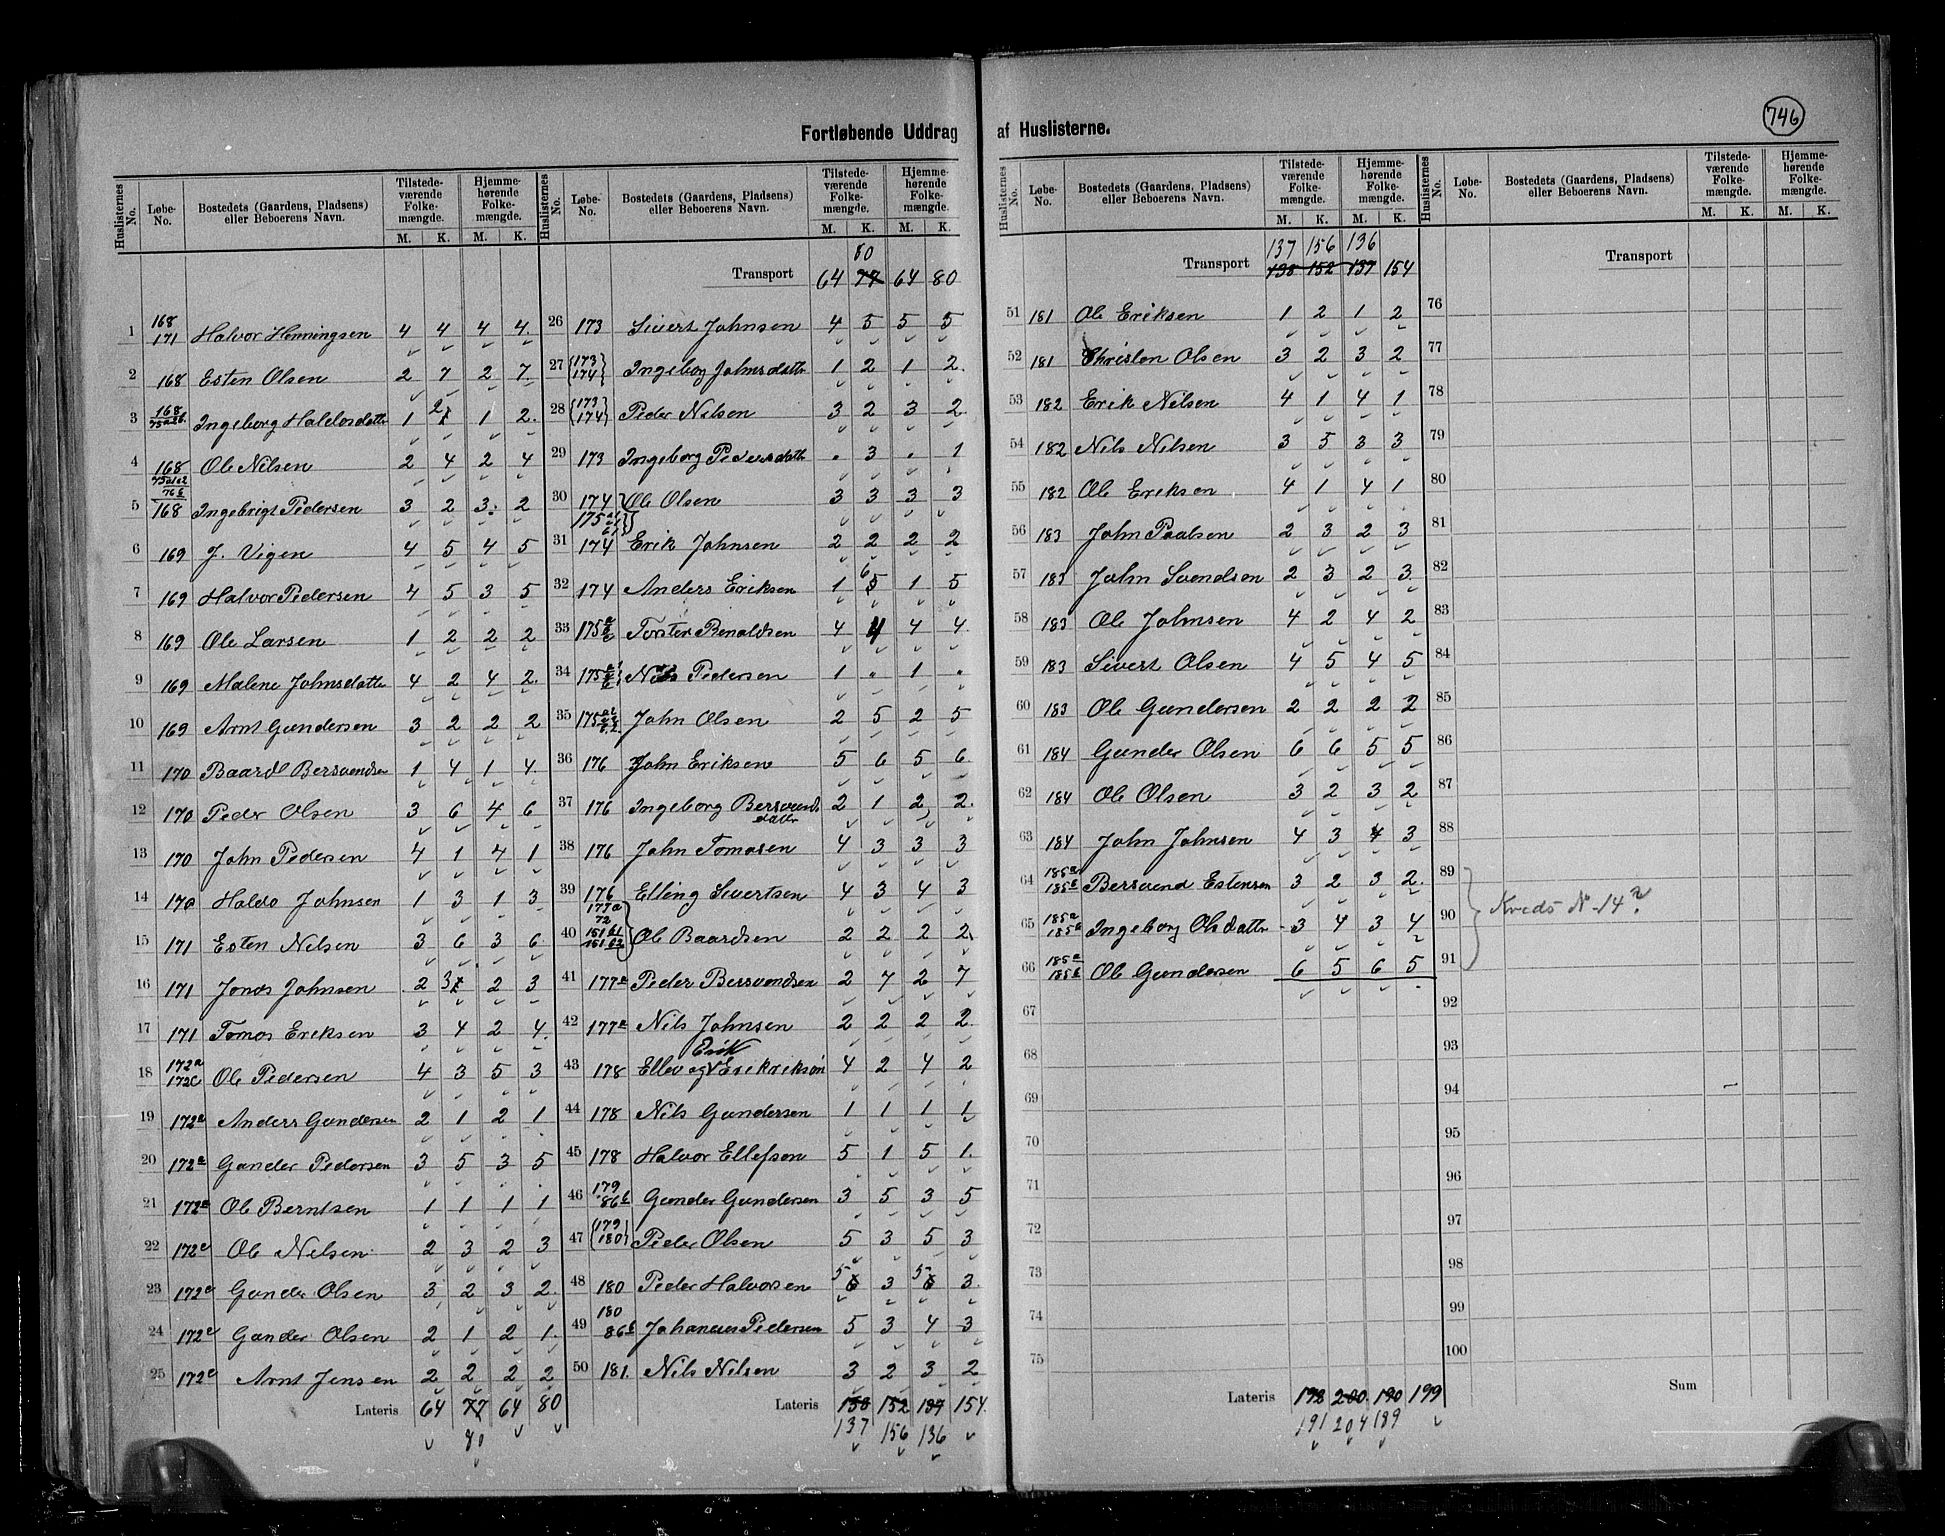 Fortløbende Uddrag af Huslisterne.
746
Huslisternes No. Løbe-No. Bostedets (Gaardens, Pladsens) eller Beboerens Navn. Tilstedeværende Folkemængde. M. K. Hjemmehørende Folkemængde. M. K.
1 168 171 Halvor Henningsen 4 4 4 4.
2 168 Esten Olsen 2 7 2 7.
3 168 75a2b. Ingeborg Haldosdatter 1 2 1 2.
4 168 Ole Nilsen 2 4 2 4
5 75a1a2 76b 168 Ingebrigt Pedersen 3 2 3. 2
6 169 J. Vigen 4 5 4 5
7 169 Halvor Pedersen 4 5 3 5
8 169 Ole Larsen 1 2 2 2
9 169 Malene Johnsdatte 4 2 4 2.
10 169 Arnt Gundersen 3 2 2 2
11 170 Baard Bersvendsen 1 4 1 4.
12 170 Peder Olsen 3 6 4 6
13 170 John Pedersen 4 1 4 1
14 170 Haldo Johnsen 1 3 1 3
15 171 Esten Nilsen 3 6 3 6
16 171 Jonas Johnsen 2 3 2 3
17 171 Tomas Eriksen 3 4 2 4.
18 172a 172c Ole Pedersen 4 3 5 3
19 172a Anders Gundersen 2 1 2 1
20 172a Gunder Pedersen 3 5 3 5
21 172a Ole Berntsen 1 1 1 1
22 172c Ole Nilsen 2 3 2 3
23 172c Gunder Olsen 3 2 3 2.
24 172c Gunder Olsen 2 1 2 1.
25 172c Arnt Jensen 2 2 2 2
Lateris 64 77 64 80
80
Huslisternes No. Løbe-No. Bostedets (Gaardens, Pladsens) eller Beboerens Navn. Tilstedeværende Folkemængde. M. K. Hjemmehørende Folkemængde. M. K.
80
Transport 64 77 64 80
26 173 Sivert Johnsen 4 5 5 5
27 {173 174} Ingeborg Johnsdattr 1 2 1 2.
28 {173 174} Peder Nilsen 3 2 3 2
29 173 Ingeborg Pedersdattr . 3 . 1
30 174 Ole Olsen 3 3 3 3
31 174 Erik Johnsen 2 2 2 2
32 174 Anders Eriksen 1 6 1 5
33 175 Torsten Renaldsen 4 4 4 4
34 175 Nils Pedersen 1 . 1 .
35 175 John Olsen 2 5 2 5
36 176 John Eriksen 5 6 5 6
37 176 Ingeborg Bersvends datter 2 1 2 2.
38 176 John Tomasen 4 3 3 3
39 176 Elling Sivertsen 4 3 4 3
40 177a 72 161b1 161b2 Ole Baardsen 2 2 2 2
41 177a Peder Bersvendsen 2 7 2 7
42 177a Nils Johnsen 2 2 2 2
Erik
43 178 Ellev og Erikriksøn 4 2 4 2
44 178 Nils Gundersen 1 1 1 1
45 178 Halvor Ellefson 5 1 5 1.
46 179 86b Gunder Gundersen 3 5 3 5
47 {179 180} Peder Olsen 5 3 5 3
48 180 Peder Halvorsen 5 6 3 5 6 3.
49 180 86b Johannes Pedersen 5 3 4 3
50 181. Nils Nilsen 3 2 3 2
Lateris 138 152 137 154.
137 156 136
Huslisternes No. Løbe-No. Bostedets (Gaardens, Pladsens) eller Beboerens Navn. Tilstedeværende Folkemængde. M. K. Hjemmehørende Folkemængde. M. K.
137 156 136
Transport 138 152 137 154
51 181 Ole Eriksen 1 2 1 2
52 181 Christen Olsen 3 2 3 2
53 182 Erik Nilsen 4 1 4 1
54 182 Nils Nilsen 3 5 3 3
55 182 Ole Eriksen 4 1 4 1
56 183 John Paalsen 2 3 2 3
57 183 John Svendsen 2 3 2 3
58 183 Ole Johnsen 4 2 4 2
59 183 Sivert Olsen 4 5 4 5
60 183 Ole Gundersen 2 2 2 2
61 184 Gunder Olsen 6 6 5 5
62 184 Ole Olsen 3 2 3 2
63 184 John Johnsen 4 3 4 3
64 185a 185b Bersvend Estensen 3 2 3 2.
65 185a 185b Ingeborg Olsdattr 3 4 3 4
66 185a 185b Ole Gundersen 6 5 6 5
67
68
69
70
71
72
73
74
75
Lateris 192 200. 190 199
191 204 189
Huslisternes No. Løbe-No. Bostedets (Gaardens, Pladsens) eller Beboerens Navn. Tilstedeværende Folkemængde. M. K. Hjemmehørende Folkemængde. M. K.
Transport
76
77
78
79
80
81
82
83
84
85
86
87
88
89
90 Kreds No 14?
91
92
93
94
95
96
97
98
99
100
Sum